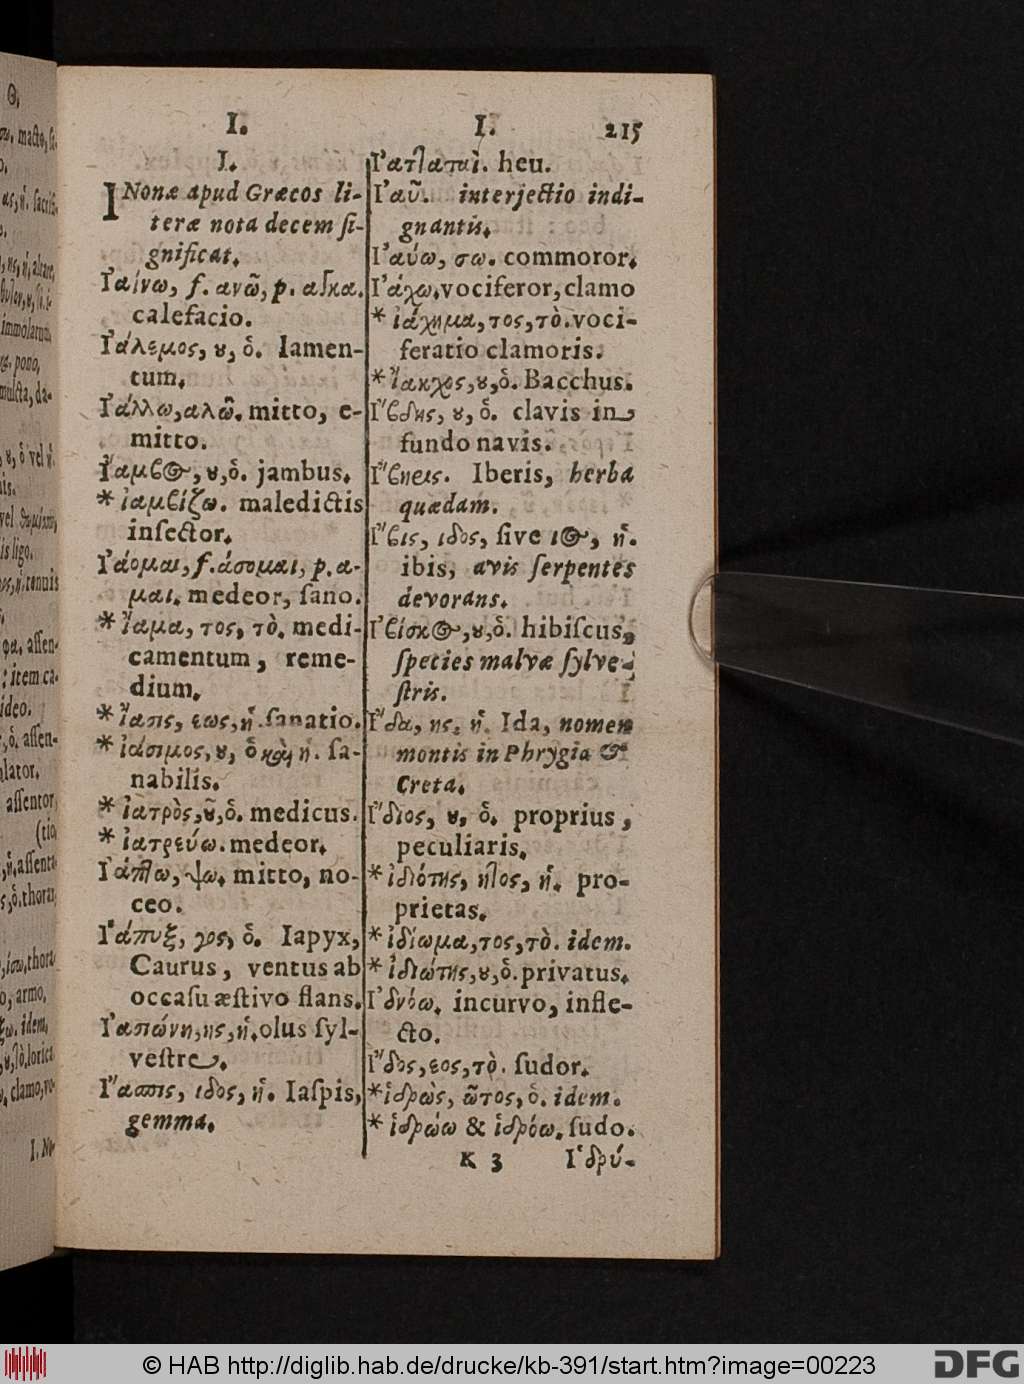 I. I. 215
I.
INonæ apud Græcos li-
teræ nota decem ſi-
gnificat.
Ἰαίνω, f. ανῶ, p. αϊκα.
calefacio.
Ἰάλεμος, ȣ, ὁ. lamen-
tum.
Ἰάλλω, αλῶ. mitto, e-
mitto.
Ἴαμϐος, ȣ, ὁ. jambus.
* ἰαμϐίζω. maledictis
inſector.
Ἰάομαι, f. άσομαι, p. α-
μαι. medeor, ſano.
* Ἴαμα, τος, τὸ. medi-
camentum, reme-
dium.
* Ἴασις, εως, ἡ. ſanatio.
* ἰάσιμος, ȣ, ὁ καὶ ἡ. ſa-
nabilis.
* ἰατρὸς, ȣ͂, ὁ. medicus.
* ἰατρεύω. medeor.
Ἰάπτω, ψω. mitto, no-
ceo.
Ἰάπυξ, γος, ὁ. Iapyx,
Caurus, ventus ab
occaſu æſtivo flans.
Ἰαπώνη, ης, ἡ. olus ſyl-
veſtre.
Ἴασπις, ιδος, ἡ. Iaſpis,
gemma.
Ἰατταταὶ. heu.
Ἰαῦ. interjectio indi-
gnantis.
Ἰαύω, σω. commoror.
Ἰάχω. vociferor, clamo
* ἰάχημα, τος, τὸ. voci-
feratio clamoris.
* Ἴακχος, ȣ, ὁ. Bacchus.
Ἴϐδης, ȣ, ὁ. clavis in
fundo navis.
Ἴϐηεις. Iberis, herba
quædam.
Ἴϐις, ιδος, ſive ιος, ἡ.
ibis, avis ſerpentes
devorans.
Ἰϐίσκος, ȣ, ὁ. hibiſcus,
ſpecies malvæ ſylve-
ſtris.
Ἴδα, ης, ἡ. Ida, nomen
montis in Phrygia &
Creta.
Ἴδιος, ȣ, ὁ. proprius,
peculiaris.
* ἰδιότης, ητος, ἡ. pro-
prietas.
* ἰδίωμα, τος, τὸ. idem.
* ἰδιώτης, ȣ, ὁ. privatus.
Ἰδνόω. incurvo, infle-
cto.
Ἴδος, εος, τὸ. ſudor.
* ἱδρὼς, ῶτος, ὁ. idem.
* ἱδρώω & ἱδρόω. ſudo.
K 3 Ἱδρύ-
© HAB http://diglib.hab.de/drucke/kb-391/start.htm?image=00223
DFG